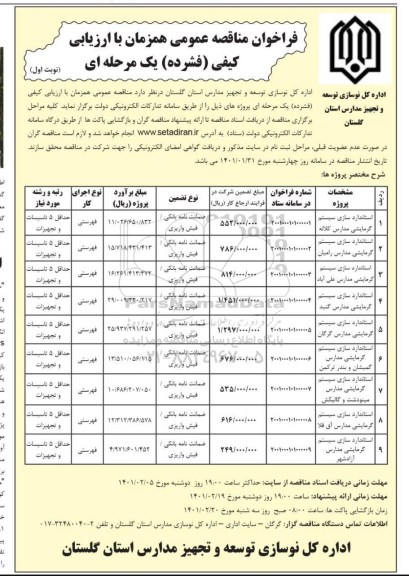 فراخوان مناقصه عمومی همزمان با ارزیابی
کیفی (فشرده) یک مرحله ای
(نوبت اول)
اداره کل نوسازی توسعه
و تجهیز مدارس استان
گلستان
اداره کل نوسازی توسعه و تجهیز مدارس استان گلستان درنظر دارد مناقصه عمومی همزمان با ارزیابی کیفی
(فشرده) یک مرحله ای پروژه های ذیل را از طریق سامانه تدارکات الکترونیکی دولت برگزار نماید. کلیه مراحل
برگزاری مناقصه از دریافت اسناد مناقصه تا ارائه پیشنهاد مناقصه گران و بازگشایی پاکت ها از طریق درگاه سامانه
تدارکات الکترونیکی دولت (ستاد) به آدرس www.setadiran.ir انجام خواهد شد و لازم است مناقصه گران
در صورت عدم عضویت قبلی، مراحل ثبت نام در سایت مذکور و دریافت گواهی امضای الکترونیکی را جهت شرکت در مناقصه محقق سازند.
تاریخ انتشار مناقصه در سامانه روز چهارشنبه مورخ ۱۴۰۱/۰۱/۳۱ می باشد.
شرح مختصر پروژه ها:
ردیف | مشخصات پروژه | شماره فراخوان در سامانه ستاد | مبلغ تضمین شرکت در فرایند ارجاع کار (ریال) | نوع تضمین | مبلغ برآورد پروژه (ریال) | نوع اجرای کار | رتبه و رشته مورد نیاز
۱ | استاندارد سازی سیستم گرمایشی مدارس کلاله | ۵۵۲/۰۰۰/۰۰۰ | ضمانت نامه بانکی / فیش واریزی | ۱۱/۰۲۶/۶۵۰/۸۳۲ | فهرستی | حداقل ۵ تاسیسات و تجهیزات
۲ | استاندارد سازی سیستم گرمایشی مدارس رامیان | ۷۸۶/۰۰۰/۰۰۰ | ضمانت نامه بانکی / فیش واریزی | ۱۵/۷۱۸/۴۳۱/۴۱۳ | فهرستی | حداقل ۵ تاسیسات و تجهیزات
۳ | استاندارد سازی سیستم گرمایشی مدارس علی آباد | ۸۱۴/۰۰۰/۰۰۰ | ضمانت نامه بانکی / فیش واریزی | فهرستی | حداقل ۵ تاسیسات و تجهیزات
۴ | استاندارد سازی سیستم گرمایشی مدارس گنبد | ۱/۴۵۱/۰۰۰/۰۰۰ | ضمانت نامه بانکی / فیش واریزی | فهرستی | حداقل ۵ تاسیسات و تجهیزات
۵ | استاندارد سازی سیستم گرمایشی مدارس گرگان | ۱/۲۹۷/۰۰۰/۰۰۰ | ضمانت نامه بانکی / فیش واریزی | ۲۵/۹۳۷/۲۹۱/۲۵۷ | فهرستی | حداقل ۵ تاسیسات و تجهیزات
۶ | استاندارد سازی سیستم گرمایشی مدارس گمیشان و بندر ترکمن | ۶۷۶/۰۰۰/۰۰۰ | ضمانت نامه بانکی / فیش واریزی | ۱۳/۵۱۰/۰۵۶/۷۱۵ | فهرستی | حداقل ۵ تاسیسات و تجهیزات
۷ | استاندارد سازی سیستم گرمایشی مدارس مینودشت و گالیکش | ۵۳۵/۰۰۰/۰۰۰ | ضمانت نامه بانکی / فیش واریزی | ۱۰/۶۸۶/۲۰۷/۰۵۰ | فهرستی | حداقل ۵ تاسیسات و تجهیزات
۸ | استاندارد سازی سیستم گرمایشی مدارس آق قلا | ۶۱۶/۰۰۰/۰۰۰ | ضمانت نامه بانکی / فیش واریزی | ۱۲/۳۱۲/۳۸۶/۵۷۸ | فهرستی | حداقل ۵ تاسیسات و تجهیزات
۹ | استاندارد سازی سیستم گرمایشی مدارس آزادشهر | ۲۴۹/۰۰۰/۰۰۰ | ضمانت نامه بانکی / فیش واریزی | ۴/۹۷۱/۶۰۱/۴۵۲ | فهرستی | حداقل ۵ تاسیسات و تجهیزات
مهلت زمانی دریافت اسناد مناقصه از سایت: حداکثر ساعت ۱۹:۰۰ روز دوشنبه مورخ ۱۴۰۱/۰۲/۰۵
مهلت زمانی ارائه پیشنهاد: ساعت ۱۹:۰۰ روز دوشنبه مورخ ۱۴۰۱/۰۲/۱۹
زمان بازگشایی پاکت ها: ساعت ۰۸:۰۰ صبح روز سه شنبه مورخ ۱۴۰۱/۰۲/۲۰
اطلاعات تماس دستگاه مناقصه گزار: گرگان – سایت اداری – اداره کل نوسازی مدارس استان گلستان و تلفن ۲-۰۱۷-۳۲۴۸۰۰۴۰
اداره کل نوسازی توسعه و تجهیز مدارس استان گلستان